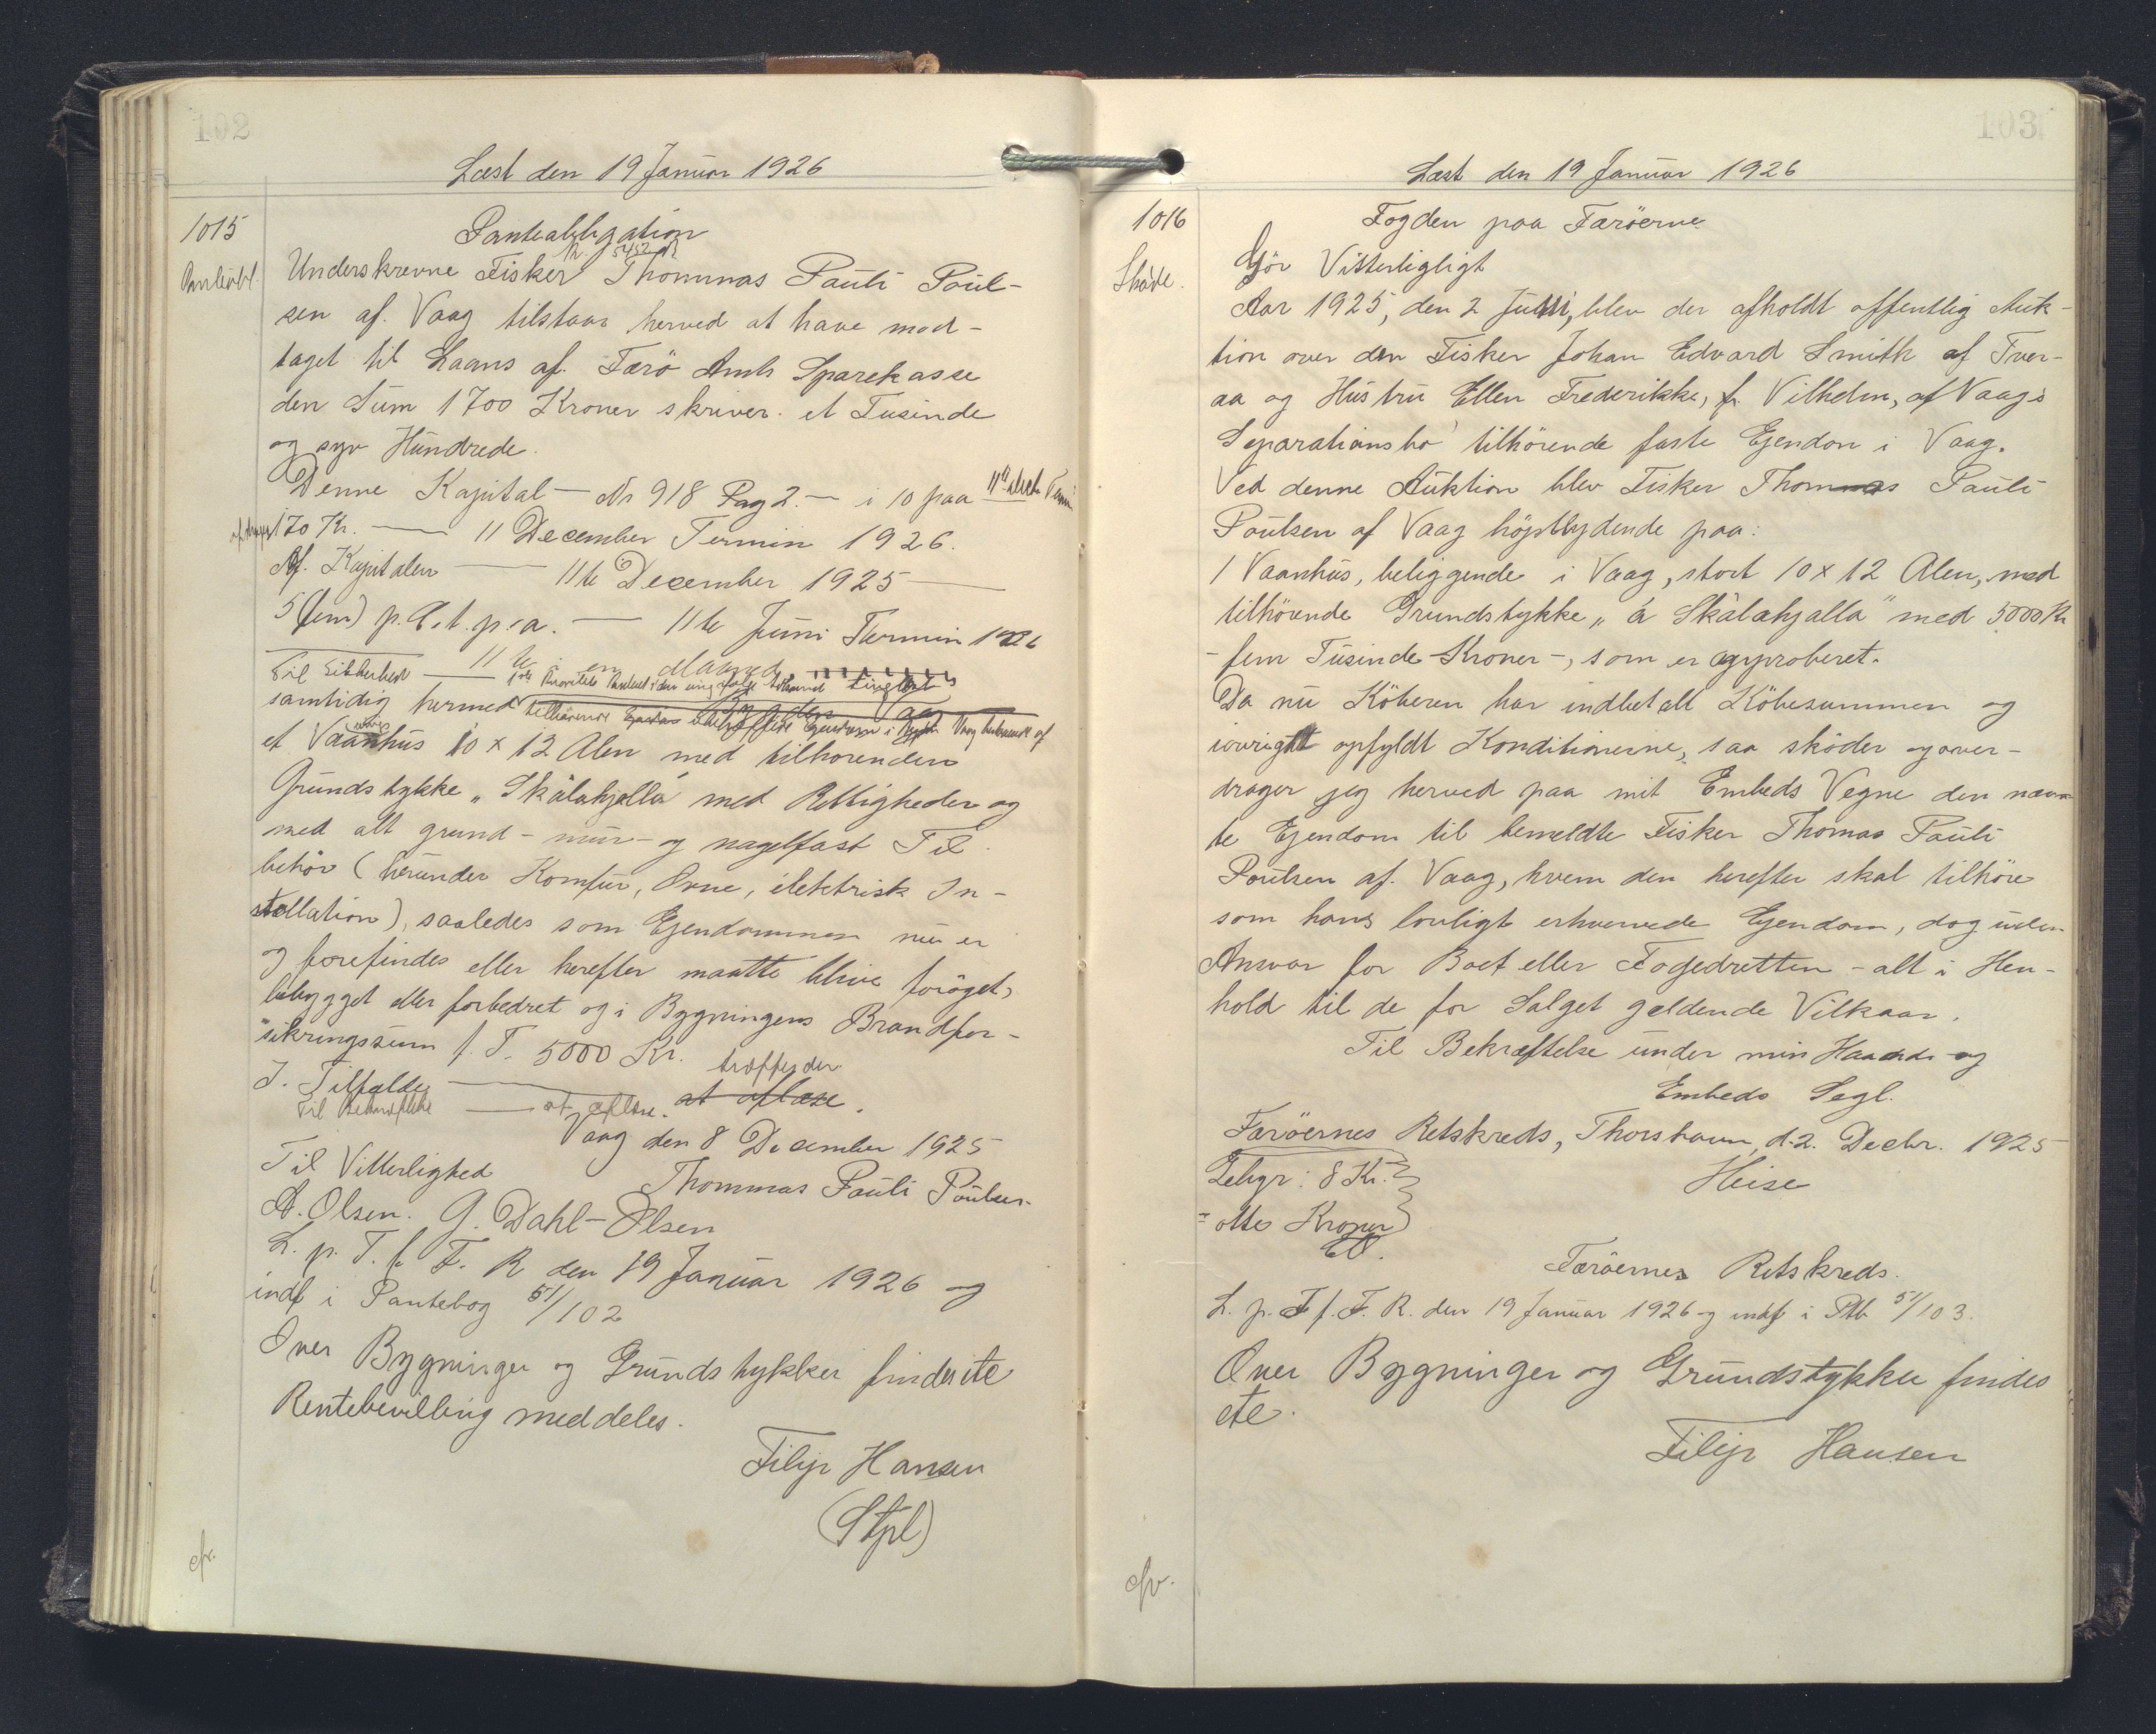 102
Læst den 19 Januar 1926
1015
Pantobl.
Panteobligation
Nr. 5452
Underskrevne Fisker Thommas Pauli Poul-
sen af. Vaag tilstaar herved at have mod-
taget til Laans af. Færö Amts Sparekasse
den Sum 1700 Kroner skriver. et Tusinde
og syv Hundrede.
Denne Kapital — Nr 918 Pag 2. — i 10 paa 11te
170 Kr. — 11 December Termin 1926.
Af. Kapitalen — 11te December 1925 —
5 (fem) p.C.t. p.a. — 11te Juni Termin 1926
Til Sikkerhed — 11te en Maaned
samtidig hermed
et Vaanhus 10 x 12 Alen med tilhorenden
Grundstykke „Skálahjalla" med Rettigheder og
med alt grund- mur- og nagelfast Til
behör (herunder Komfur, Ovne, elektrisk In-
stallation), saaledes som Ejendommen nu er
og forefindes eller herefter maatte blive foröget,
bebygget eller forbedret og i Bygningens Brandfor-
sikringssum f. T. 5000 Kr. træffer der
I. Tilfælde — at aflæse.
Til Bekræftelse — at aflæse.
Vaag den 8 December 1925
Til Vitterlighed
Thommas Pauli Poulsen.
A. Olsen. G. Dahl-Olsen
L. p. T. f. F. R den 19 Januar 1926 og
indf i Pantebog 51/102
Over Bygninger og Grundstykker findes ete
Rentebevilling meddeles.
Filip Hansen
(Stpl)
cfr.
103
Læst den 19 Januar 1926
1016
Sköde.
Fogden paa Færöerne
Gör Vitterligligt
Aar 1925, den 2 Juni, blev der afholdt offentlig Auk-
tion over den Fisker Johan Edvard Smith af Tver-
aa og Hustru Ellen Frederikke, f. Vilhelm, af Vaags
Separationsbo tilhörende faste Ejendon i Vaag.
Ved denne Auktion blev Fisker Thommas Pauli
Poulsen af Vaag höjstbydende paa:
1 Vaanhus, beliggende i Vaag, stort 10 x 12 Alen, med
tilhörende Grundstykke „á Skálahjalla" med 5000 Kr
- fem Tusinde Kroner -, som er approberet.
Da nu Köberen har indbetalt Köbesummen og
iövrigt opfyldt Konditionerne, saa sköder og over-
drager jeg herved paa mit Embeds Vegne den nævn-
te Ejendom til bemeldte Fisker Thomas Pauli
Poulsen af. Vaag, hvem den herefter skal tilhöre
som hans lovligt erhvervede Ejendom, dog uden
Ansvar for Boet eller Fogedretten - alt i Hen-
hold til de for Salget gældende Vilkaar.
Til Bekræftelse under min Haands- og
Embeds Segl.
Færöernes Retskreds, Thorshavn, d. 2. Decbr. 1925
Gebyr: 8 Kr.
Heise
= otte Kroner
Færöernes Retskreds.
L. p. T f. F. R. den 19 Januar 1926 og indf i Ptb 51/103.
Over Bygninger og Grundstykke findes
ete.
Filip Hansen
cfr.